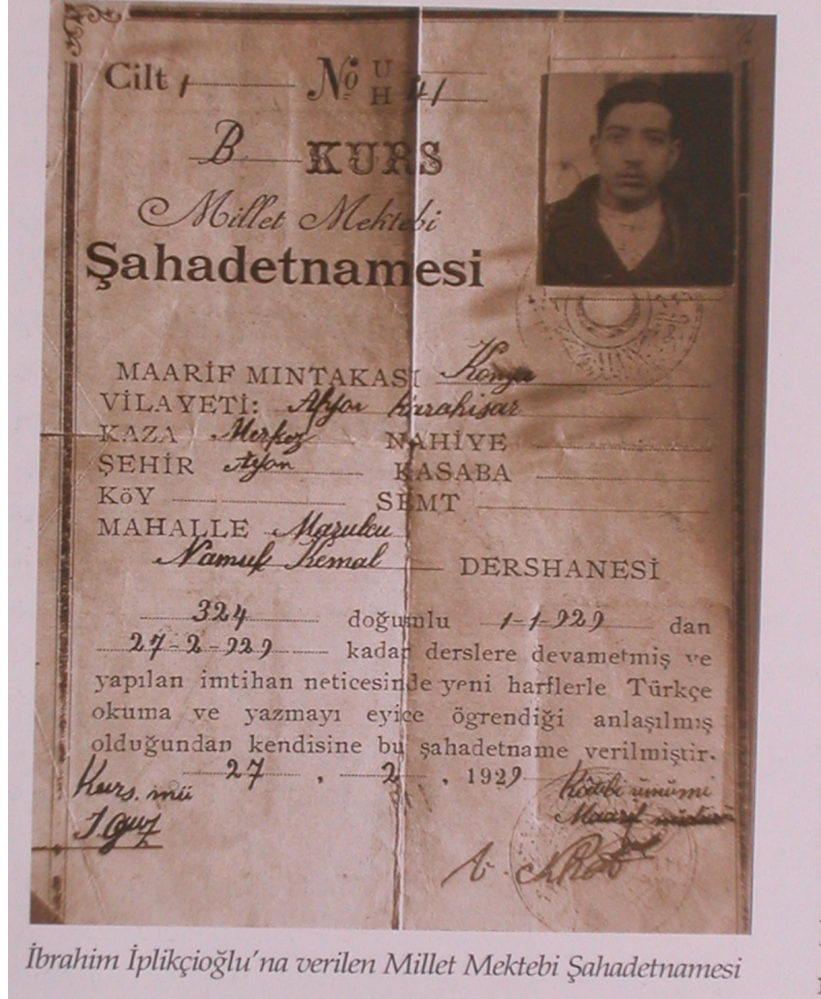 Cilt 1 No U H 41
B KURS
Millet Mektebi
Şahadetnamesi
MAARİF MINTAKASI Konya
VİLAYETİ: Afyon Karahisar
KAZA Merkez NAHİYE
ŞEHİR Afyon KASABA
KÖY SEMT
MAHALLE Marulcu
Namık Kemal DERSHANESİ
324 doğumlu 1-1-929 dan
27-2-929 kadar derslere devametmiş ve
yapılan imtihan neticesinde yeni harflerle Türkçe
okuma ve yazmayı eyice ögrendiği anlaşılmış
olduğundan kendisine bu şahadetname verilmiştir.
27 , 2 , 1929
Kurs. mü Kâtibi umumi
Maarif müdürü
İbrahim İplikçioğlu'na verilen Millet Mektebi Şahadetnamesi